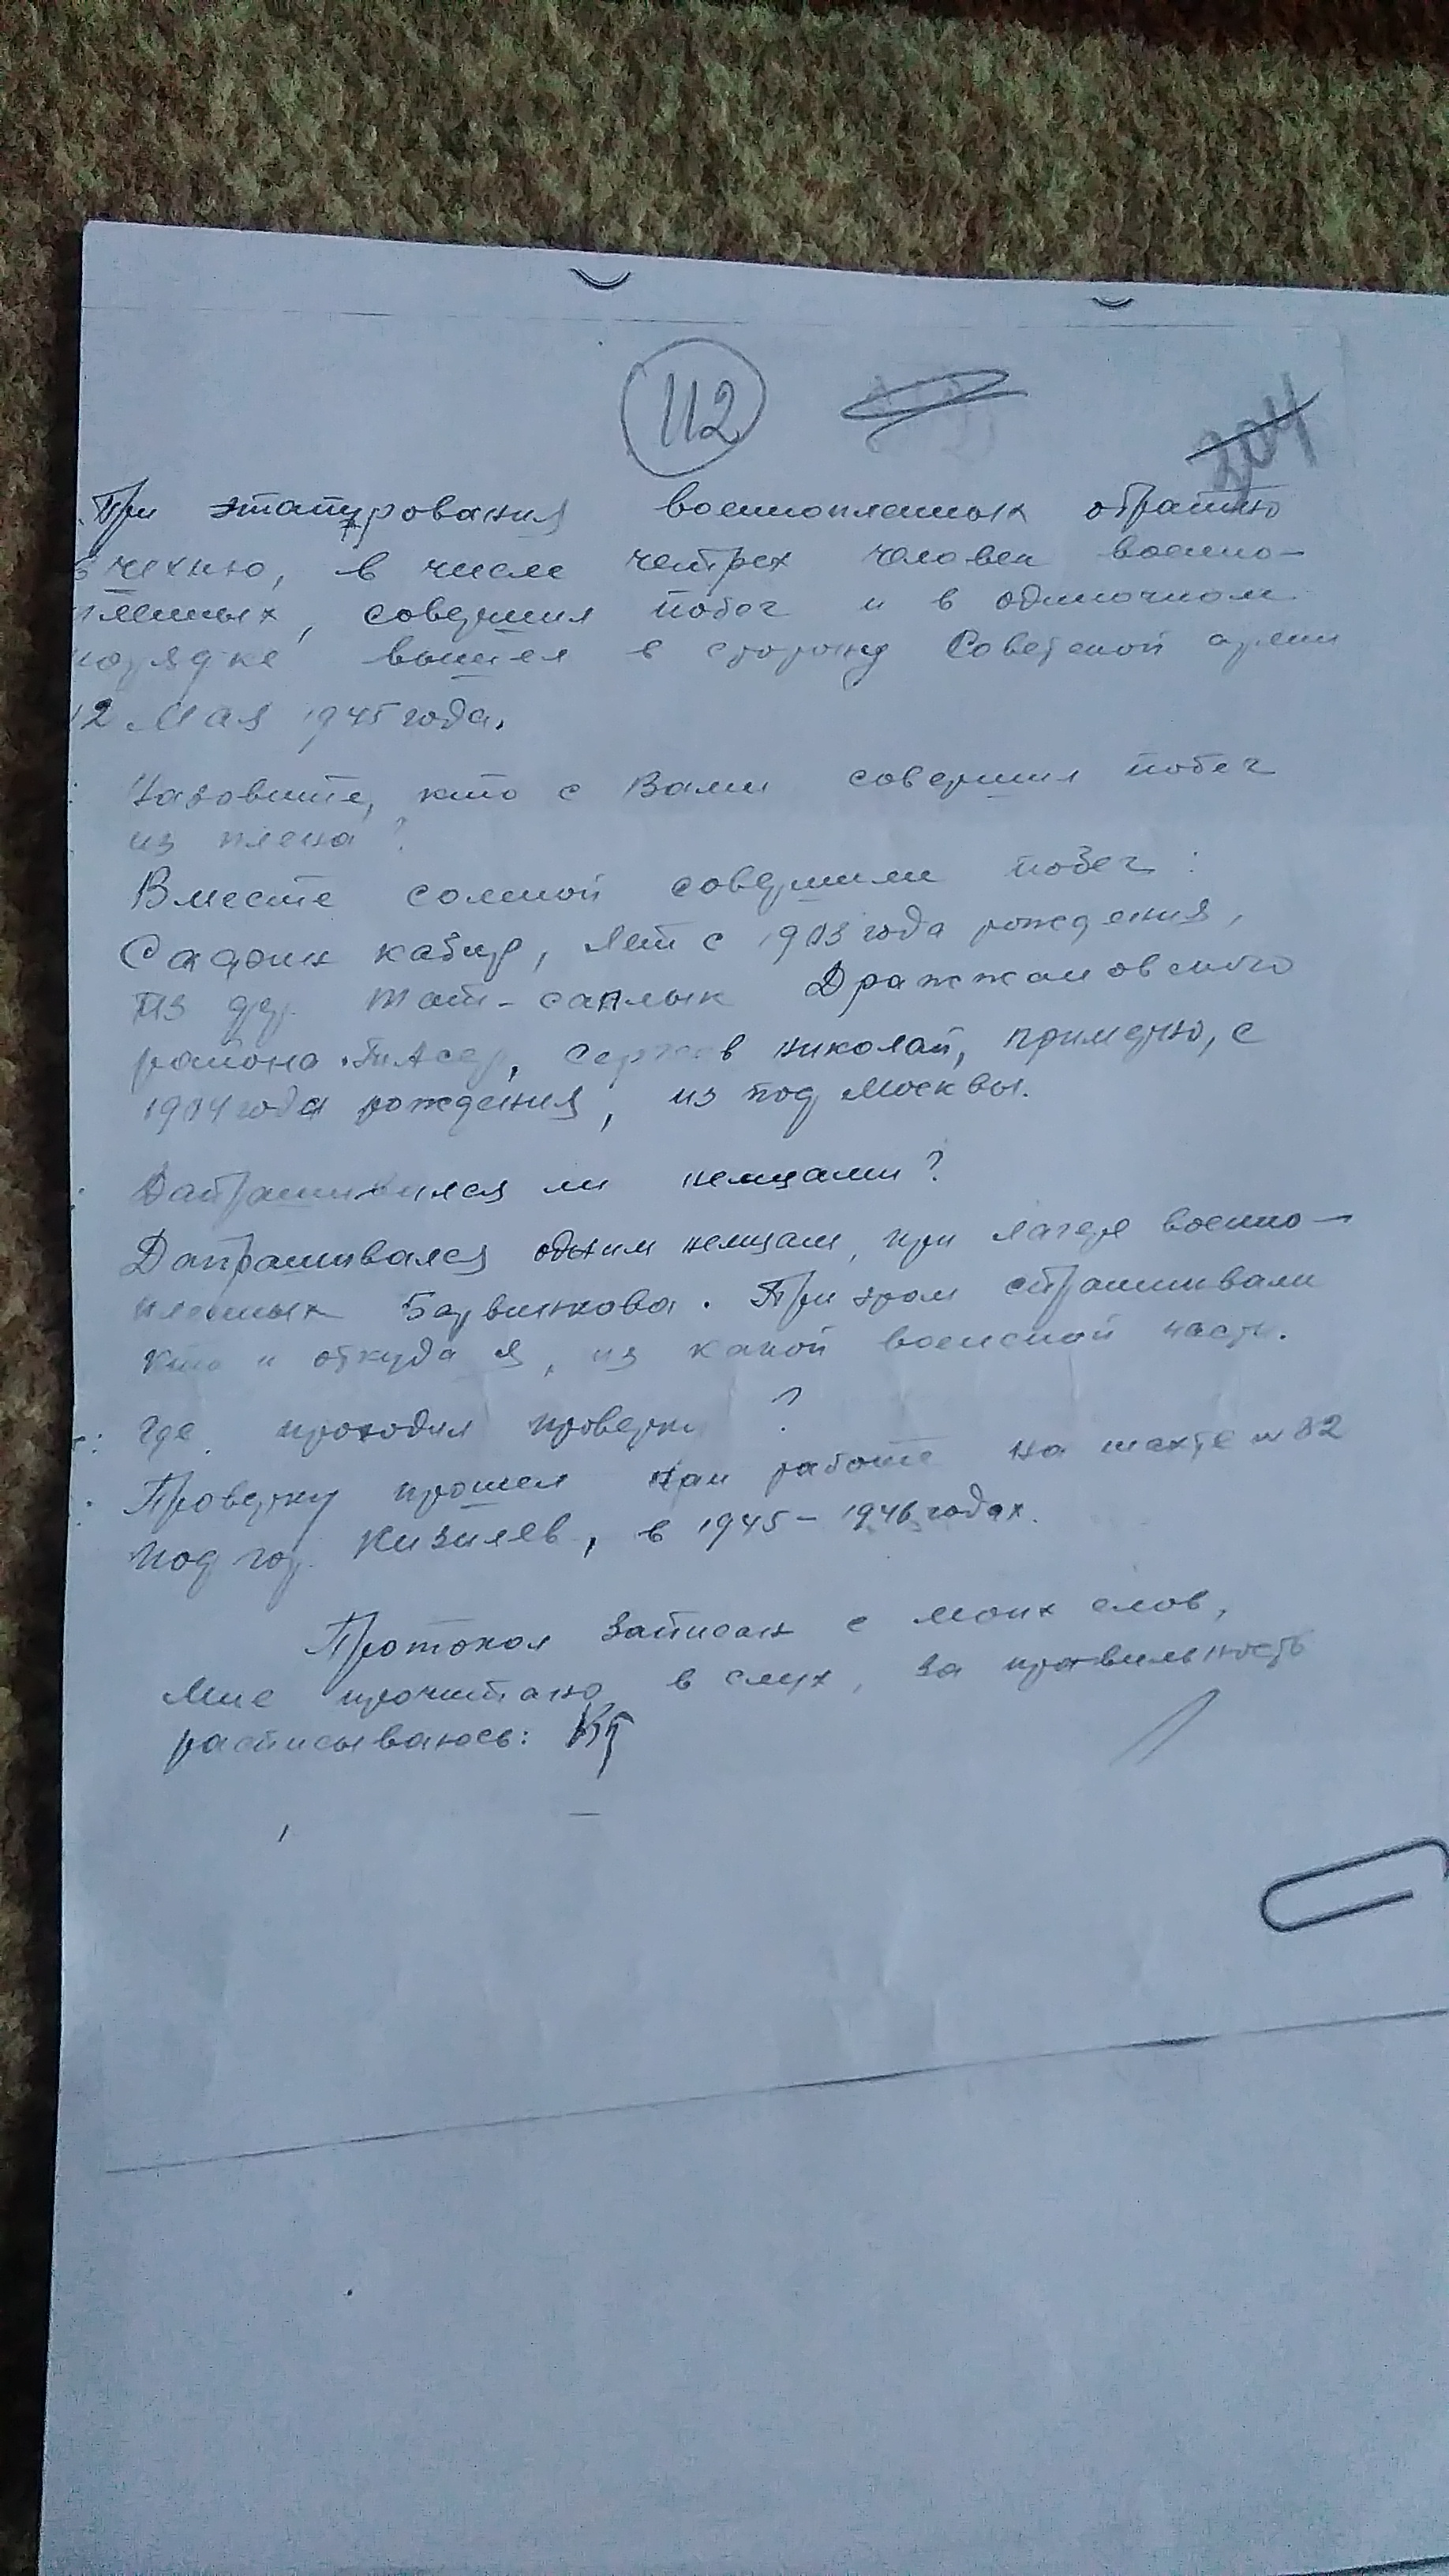 112
204
При этапирования военнопленных обратно
в чехию, в числе четрех человек военно-
пленных, совершил побег и в одиночном
порядке вышел в сторону Советской армии
12 мая 1945 года.
Назовите, кто с Вами совершил побег
из плена?
Вместе сомной совершили побег:
Садрик кабир, лет с 1903 года рождения,
из дер. Тат-саплык Дражжановского
района ТАССР, Сергеев николай, примерно, с
1904 года рождения, из под Москвы.
Датрашивился ли немцами?
Датрашивался одним немцам, при лагере военно-
пленных Барвинкова. При этом спрашивали
кто и откуда я, из какой воинской части.
Где проходил проверку?
Проверку прошел при работе на шахте № 32
под гор. Кизиляев, в 1945-1946 годах.
Протокол записан с моих слов,
мне прочитано в слух, за правильность
расписываюсь: